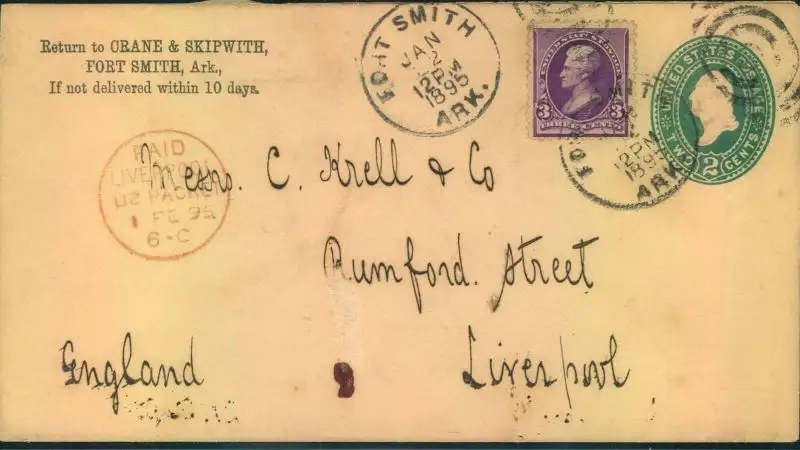 Return to CRANE & SKIPWITH,
FORT SMITH, Ark.,
If not delivered within 10 days.
FORT SMITH
JAN
2
12PM
1895
ARK.
3 3
UNITED STATES POSTAGE
TWO 2 CENTS
12PM
1895
ARK.
PAID
LIVERPOOL
US PACKET
1 FE 95
6-C
Messrs. C. Krell & Co
Rumford. Street
Liverpool
England